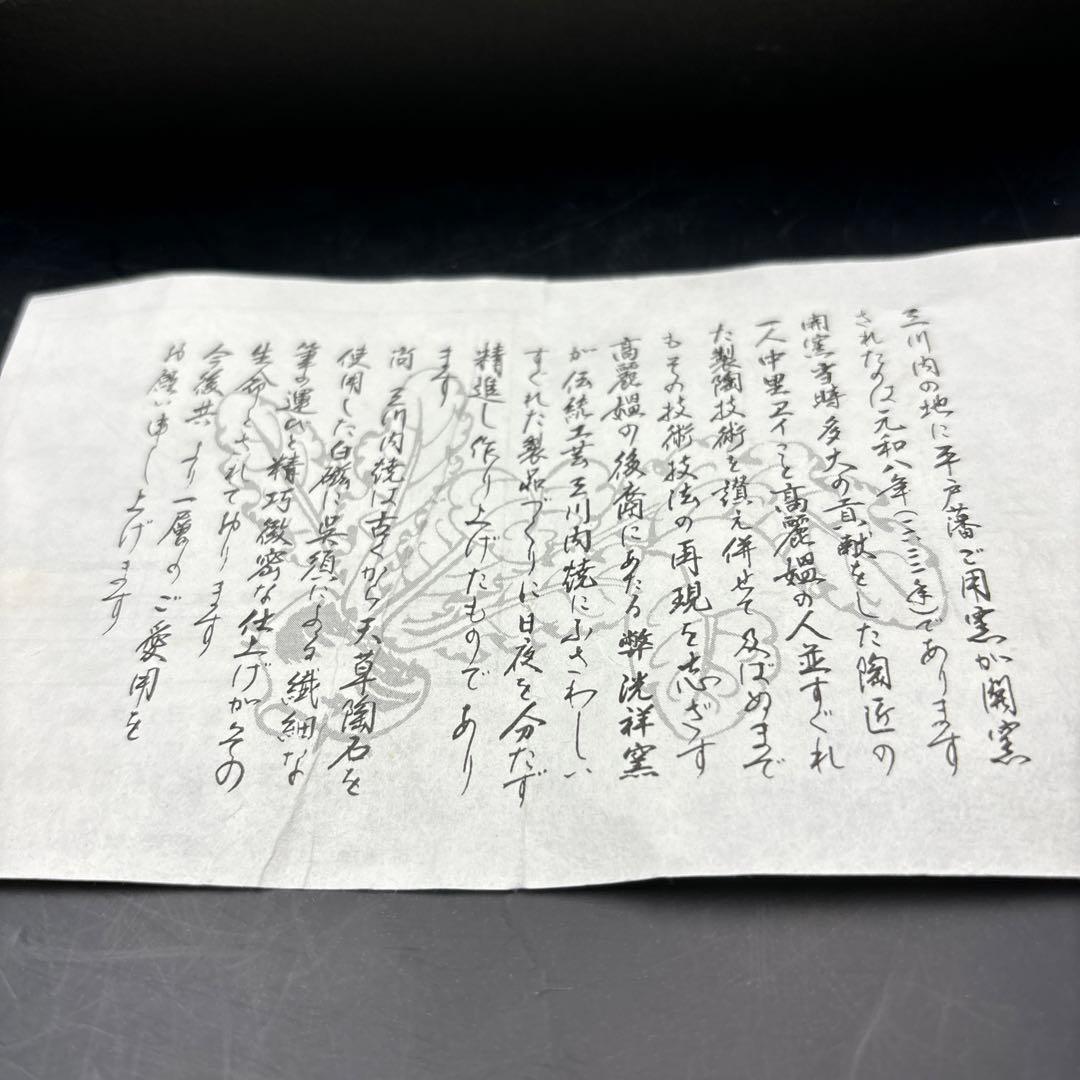 三川内の地に平戸藩ご用窯が開窯
されたのは元和八年(一六二二年)であります
開窯当時多大の貢献をした陶匠の
一人中里ヱイこと高麗媼の人並すぐれ
た製陶技術を讃え併せて及ばぬまで
もその技術技法の再現を志ざす
高麗媼の後裔にあたる弊洸祥窯
が伝統工芸三川内焼にふさわしい
すぐれた製品づくりに日夜を分たず
精進し作り上げたものであり
ます
尚 三川内焼は古くから天草陶石を
使用した白磁に呉須による繊細な
筆の運びと精巧緻密な仕上げがその
生命とされております
今後共 より一層のご愛用を
お願い申し上げます